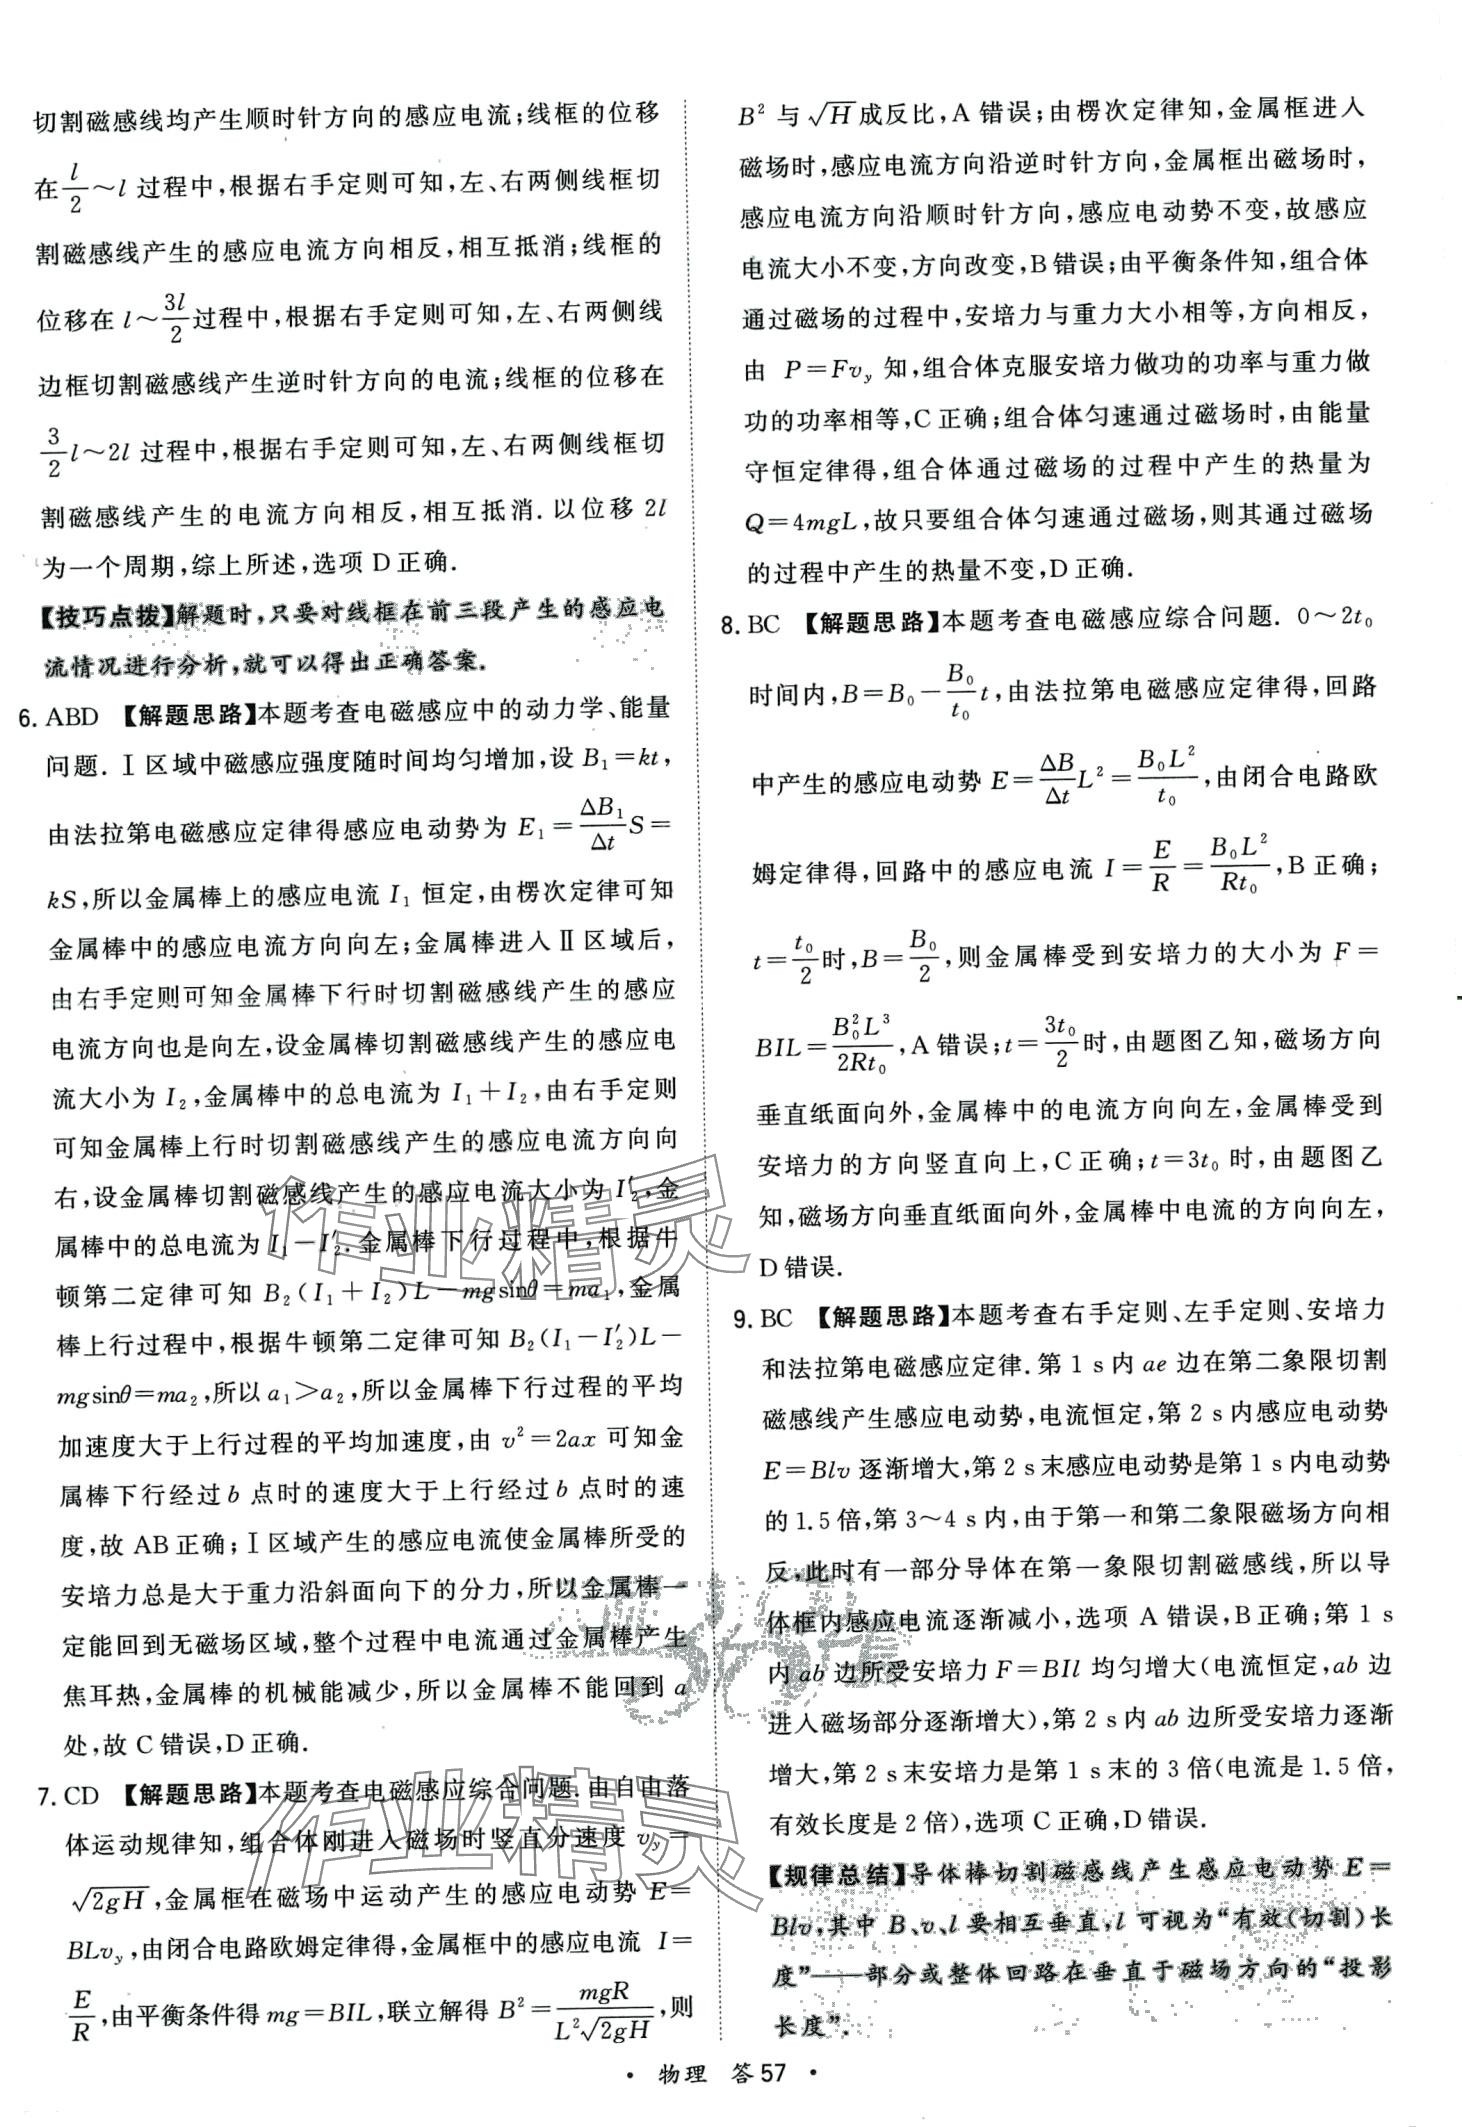 切割磁感线均产生顺时针方向的感应电流;线框的位移
在 l/2～l 过程中,根据右手定则可知,左、右两侧线框切
割磁感线产生的感应电流方向相反,相互抵消;线框的
位移在 l～3l/2 过程中,根据右手定则可知,左、右两侧线
边框切割磁感线产生逆时针方向的电流;线框的位移在
3/2 l～2l 过程中,根据右手定则可知,左、右两侧线框切
割磁感线产生的电流方向相反,相互抵消.以位移 2l
为一个周期,综上所述,选项 D 正确.
【技巧点拨】解题时,只要对线框在前三段产生的感应电
流情况进行分析,就可以得出正确答案.
6. ABD 【解题思路】本题考查电磁感应中的动力学、能量
问题.Ⅰ区域中磁感应强度随时间均匀增加,设 B₁=kt,
由法拉第电磁感应定律得感应电动势为 E₁=ΔB₁/Δt S=
kS,所以金属棒上的感应电流 I₁ 恒定,由楞次定律可知
金属棒中的感应电流方向向左;金属棒进入Ⅱ区域后,
由右手定则可知金属棒下行时切割磁感线产生的感应
电流方向也是向左,设金属棒切割磁感线产生的感应电
流大小为 I₂,金属棒中的总电流为 I₁+I₂,由右手定则
可知金属棒上行时切割磁感线产生的感应电流方向向
右,设金属棒切割磁感线产生的感应电流大小为 I₂′,金
属棒中的总电流为 I₁-I₂′.金属棒下行过程中,根据牛
顿第二定律可知 B₂(I₁+I₂)L-mgsinθ=ma₁,金属
棒上行过程中,根据牛顿第二定律可知 B₂(I₁-I₂′)L-
mgsinθ=ma₂,所以 a₁>a₂,所以金属棒下行过程的平均
加速度大于上行过程的平均加速度,由 v²=2ax 可知金
属棒下行经过 b 点时的速度大于上行经过 b 点时的速
度,故 AB 正确;Ⅰ区域产生的感应电流使金属棒所受的
安培力总是大于重力沿斜面向下的分力,所以金属棒一
定能回到无磁场区域,整个过程中电流通过金属棒产生
焦耳热,金属棒的机械能减少,所以金属棒不能回到 a
处,故 C 错误,D 正确.
7. CD 【解题思路】本题考查电磁感应综合问题.由自由落
体运动规律知,组合体刚进入磁场时竖直分速度 v_y=
√(2gH),金属框在磁场中运动产生的感应电动势 E=
BLv_y,由闭合电路欧姆定律得,金属框中的感应电流 I=
E/R,由平衡条件得 mg=BIL,联立解得 B²=mgR/(L²√(2gH)),则
B² 与 √H 成反比,A 错误;由楞次定律知,金属框进入
磁场时,感应电流方向沿逆时针方向,金属框出磁场时,
感应电流方向沿顺时针方向,感应电动势不变,故感应
电流大小不变,方向改变,B 错误;由平衡条件知,组合体
通过磁场的过程中,安培力与重力大小相等,方向相反,
由 P=Fv_y 知,组合体克服安培力做功的功率与重力做
功的功率相等,C 正确;组合体匀速通过磁场时,由能量
守恒定律得,组合体通过磁场的过程中产生的热量为
Q=4mgL,故只要组合体匀速通过磁场,则其通过磁场
的过程中产生的热量不变,D 正确.
8. BC 【解题思路】本题考查电磁感应综合问题.0～2t₀
时间内,B=B₀-B₀/t₀ t,由法拉第电磁感应定律得,回路
中产生的感应电动势 E=ΔB/Δt L²=B₀L²/t₀,由闭合电路欧
姆定律得,回路中的感应电流 I=E/R=B₀L²/Rt₀,B 正确;
t=t₀/2 时,B=B₀/2,则金属棒受到安培力的大小为 F=
BIL=B₀²L³/2Rt₀,A 错误;t=3t₀/2 时,由题图乙知,磁场方向
垂直纸面向外,金属棒中的电流方向向左,金属棒受到
安培力的方向竖直向上,C 正确;t=3t₀ 时,由题图乙
知,磁场方向垂直纸面向外,金属棒中电流的方向向左,
D 错误.
9. BC 【解题思路】本题考查右手定则、左手定则、安培力
和法拉第电磁感应定律.第 1 s 内 ae 边在第二象限切割
磁感线产生感应电动势,电流恒定,第 2 s 内感应电动势
E=Blv 逐渐增大,第 2 s 末感应电动势是第 1 s 内电动势
的 1.5 倍,第 3～4 s 内,由于第一和第二象限磁场方向相
反,此时有一部分导体在第一象限切割磁感线,所以导
体框内感应电流逐渐减小,选项 A 错误,B 正确;第 1 s
内 ab 边所受安培力 F=BIl 均匀增大(电流恒定,ab 边
进入磁场部分逐渐增大),第 2 s 内 ab 边所受安培力逐渐
增大,第 2 s 末安培力是第 1 s 末的 3 倍(电流是 1.5 倍,
有效长度是 2 倍),选项 C 正确,D 错误.
【规律总结】导体棒切割磁感线产生感应电动势 E=
Blv,其中 B、v、l 要相互垂直,l 可视为“有效(切割)长
度”——部分或整体回路在垂直于磁场方向的“投影
长度”.
· 物理 答57 ·
作业精灵
作业精灵